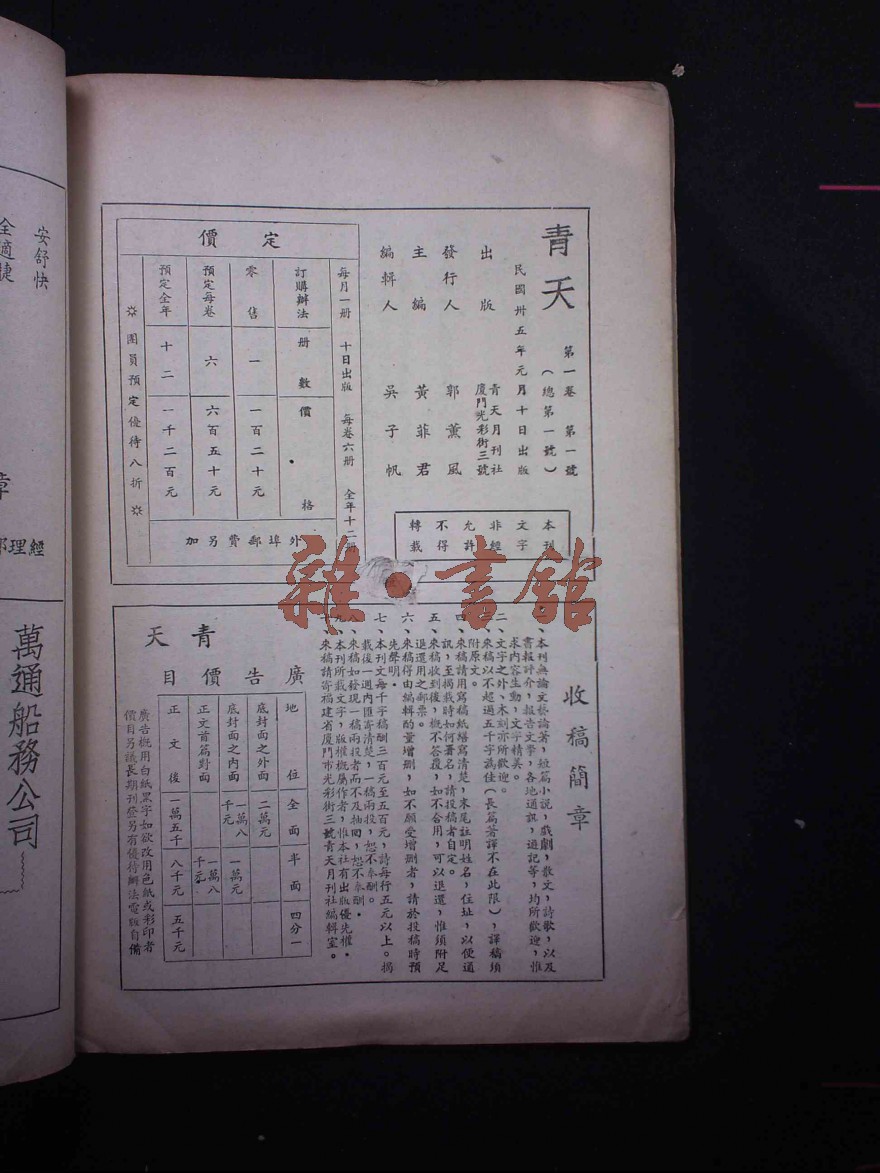 青天
第一卷 第一號
（總第一號）
民國卅五年元月十日出版
出版 青天月刊社
廈門光彩街三號
發行人 郭薰風
主編 黃菲君
編輯人 吳子帆
本刊
文字
非經
允許
不得
轉載
定價
每月一冊 十日出版 每卷六冊 全年十二冊
訂購辦法 冊數 價格
零售 一 一百二十元
預定每卷 六 六百五十元
預定全年 十二 一千二百元
外埠郵費另加
團員預定優待八折
收稿簡章
一、本刊無論文藝論著，短篇小說，戲劇，散文，詩歌，以及
書報評介，報告文學，各地通訊，遊記等，均所歡迎，惟
求內容生動，文字精美。
二、文字之外，木刻亦所歡迎。
三、來稿以不超過五千字爲佳（長篇著譯不在此限），譯稿須
附原文。
四、來稿請用寫稿紙繕寫清楚，末尾註明姓名，住址，以便通
訊，至揭載時如何署名，請投稿者自定。
五、來稿收到後，概不答覆，如不合用，可以退還，惟須附足
退還用之郵票。
六、來稿得由編輯酌量增刪，如不願受增刪者，請於投稿時預
先聲明。
七、本刊文每千字稿酬三百元至五百元，詩每行五元以上。揭
載後一週內匯寄清楚，一稿兩投，恕不奉酬。
八、來稿如發現一稿兩投者而不及抽回，恕不奉酬。
九、本刊所載文字，版權概屬作者，惟本社有出版優先權。
十、來稿請寄福建省廈門市光彩街三號青天月刊社編輯室。
青天
廣告價目
地位 全面 半面 四分一
底封面之外面 二萬元
底封面之內面 一萬八千元 一萬元
正文首篇對面 一萬八千元
正文後 一萬五千 八千元 五千元
廣告概用白紙黑字如欲改用色紙或彩印者
價目另議長期刊登另有優待辦法電版自備
安舒快
全適捷
章
部理經
萬通船務公司
雜·書館